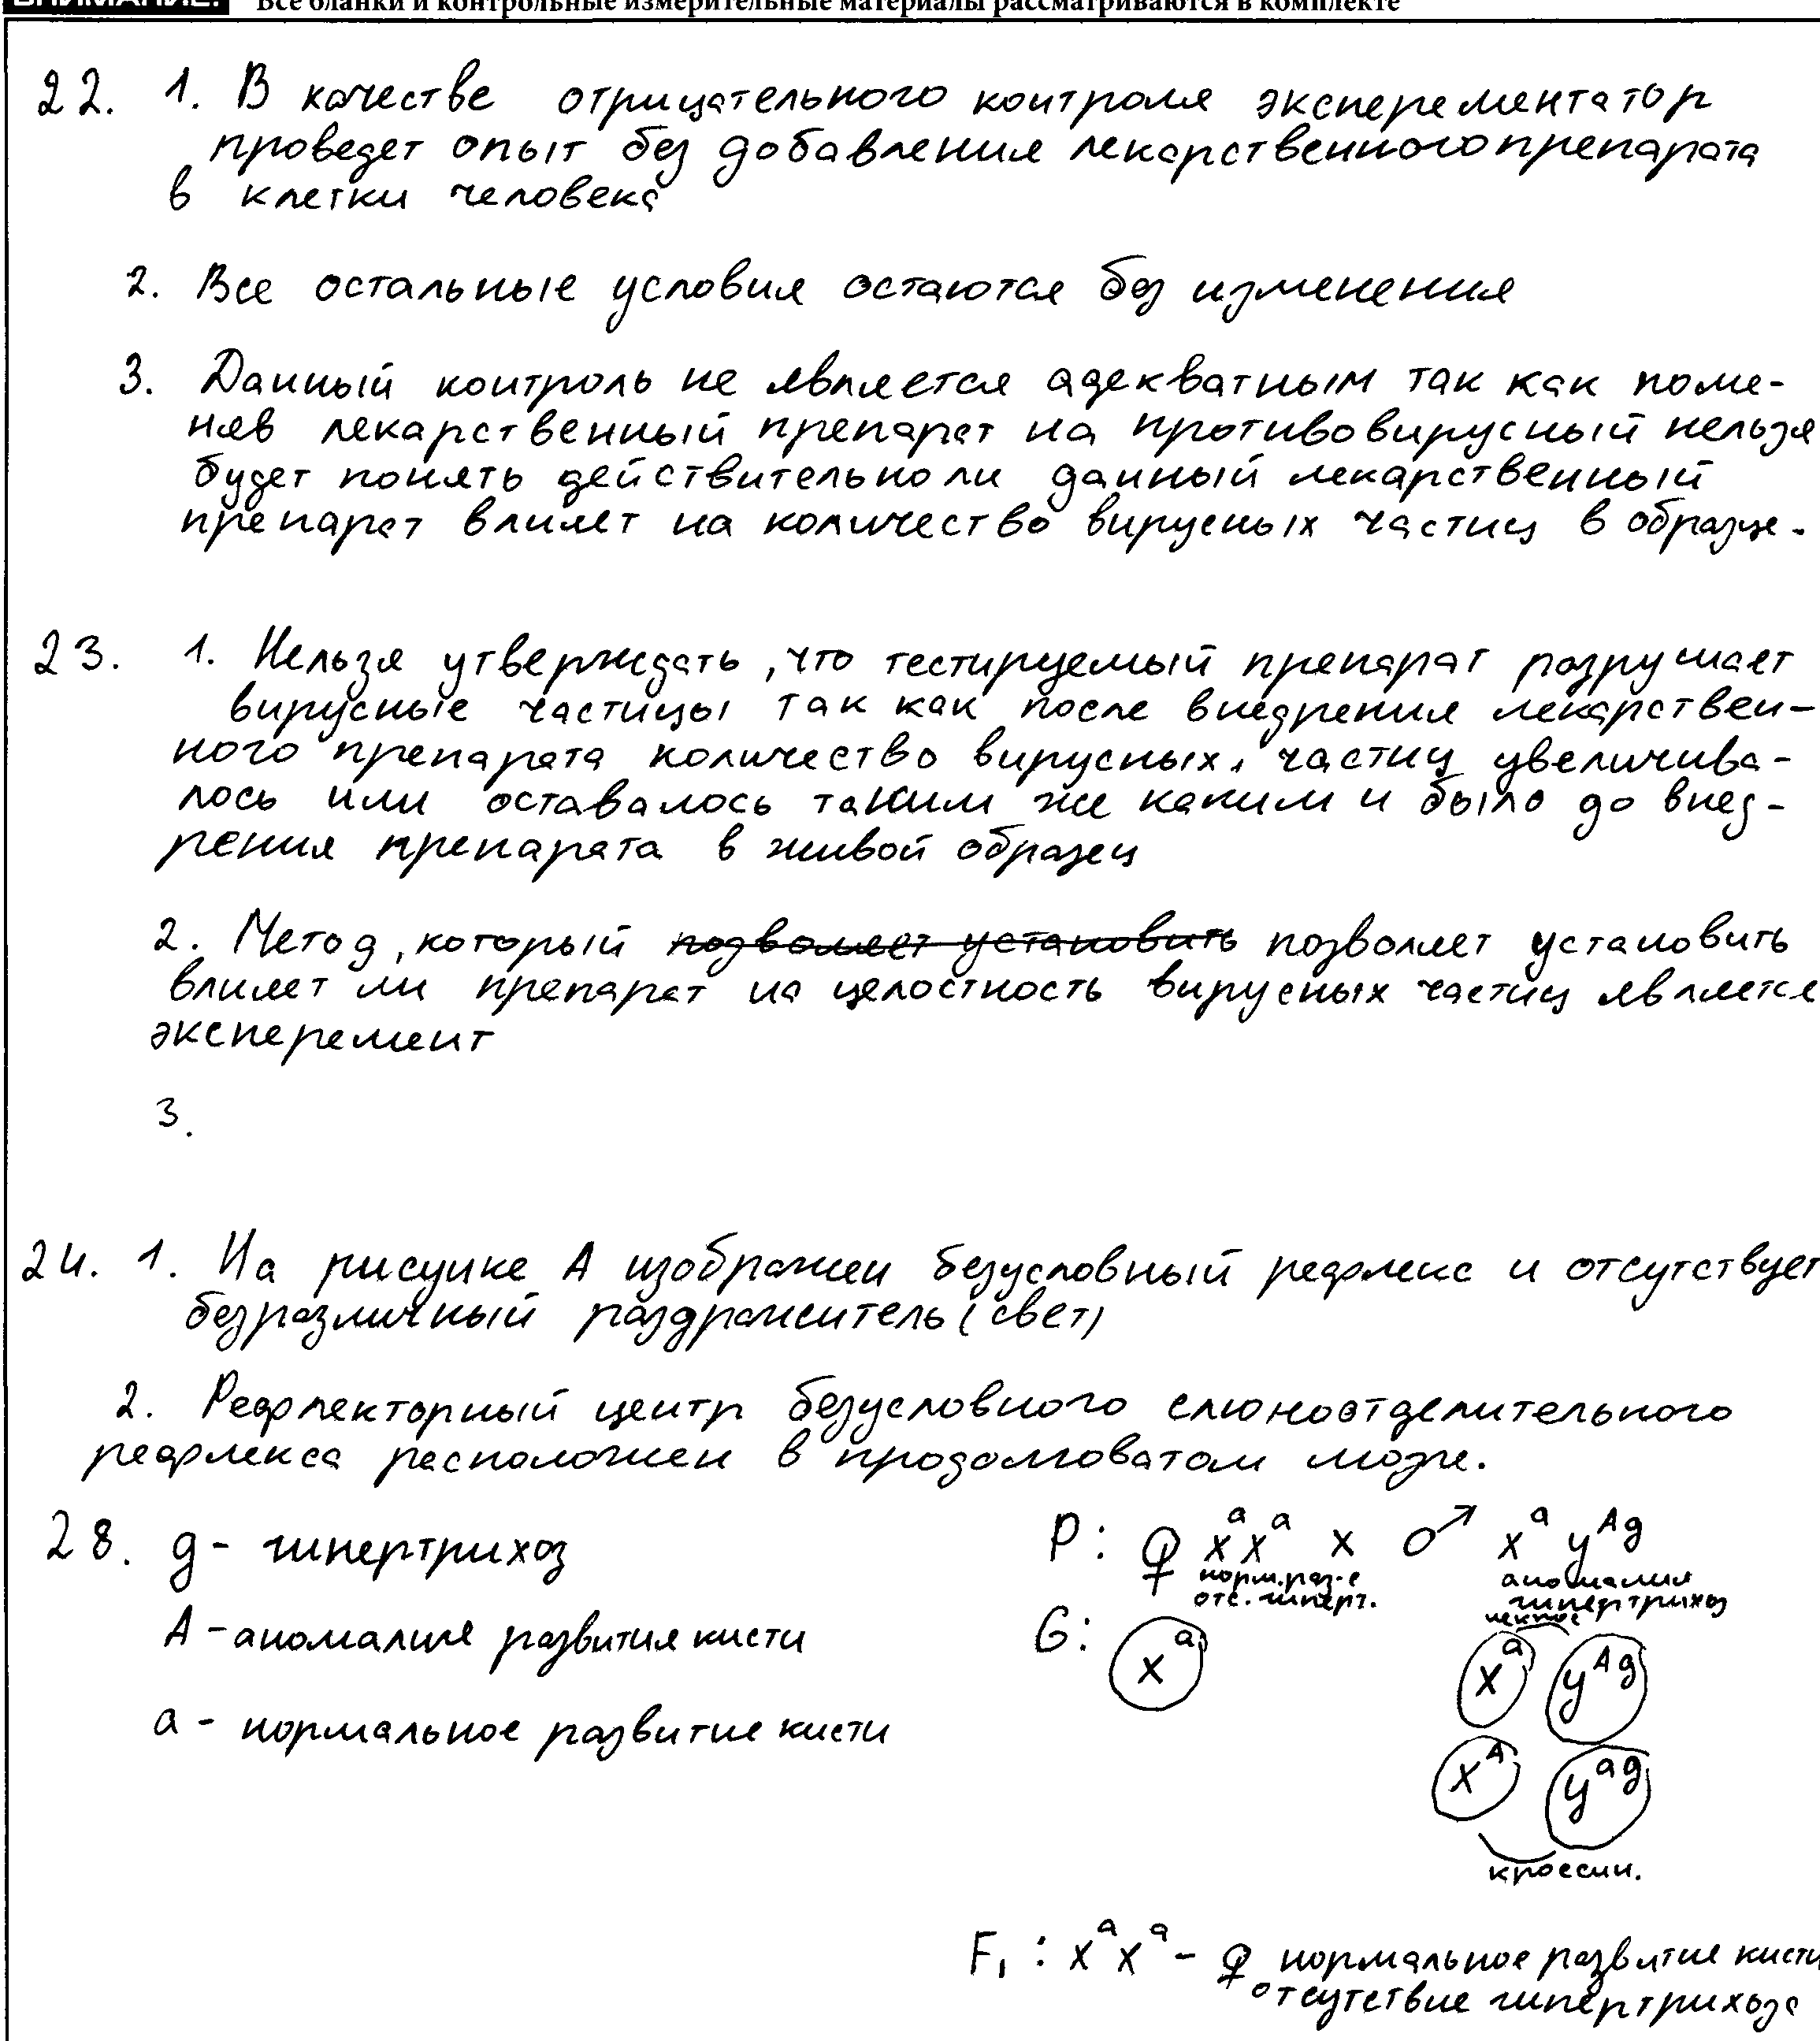 ВНИМАНИЕ! Все бланки и контрольные измерительные материалы рассматриваются в комплекте
22. 1. В качестве отрицательного контроля эксперементатор
проведет опыт без добавления лекарственного препарата
в клетки человека
2. Все остальные условия остаются без изменения
3. Данный контроль не является адекватным так как поме-
няв лекарственный препарат на противовирусный нельзя
будет понять действительно ли данный лекарственный
препарат влияет на количество вирусных частиц в образце.
23. 1. Нельзя утверждать, что тестируемый препарат разрушает
вирусные частицы так как после внедрения лекарствен-
ного препарата количество вирусных частиц увеличива-
лось или оставалось таким же каким и было до внед-
рения препарата в живой образец
2. Метод, который позволяет установить позволяет установить
влияет ли препарат на целостность вирусных частиц является
эксперемент
3.
24. 1. На рисунке А изображен безусловный рефлекс и отсутствует
безразличный раздражитель (свет)
2. Рефлекторный центр безусловного слюноотделительного
рефлекса расположен в продолговатом мозге.
28. g - гипертрихоз
P: ♀ xᵃxᵃ x ♂ xᵃ yᴬᵍ
норм. раз-е аномалия
отс. гиперт. гипертрихоз
A - аномалия развития кисти
G: xᵃ xᵃ yᴬᵍ
a - нормальное развитие кисти
xᴬ yᵃᵍ
кроссин.
F₁: xᵃxᵃ - ♀ нормальное развитие кисти
отсутствие гипертрихоза